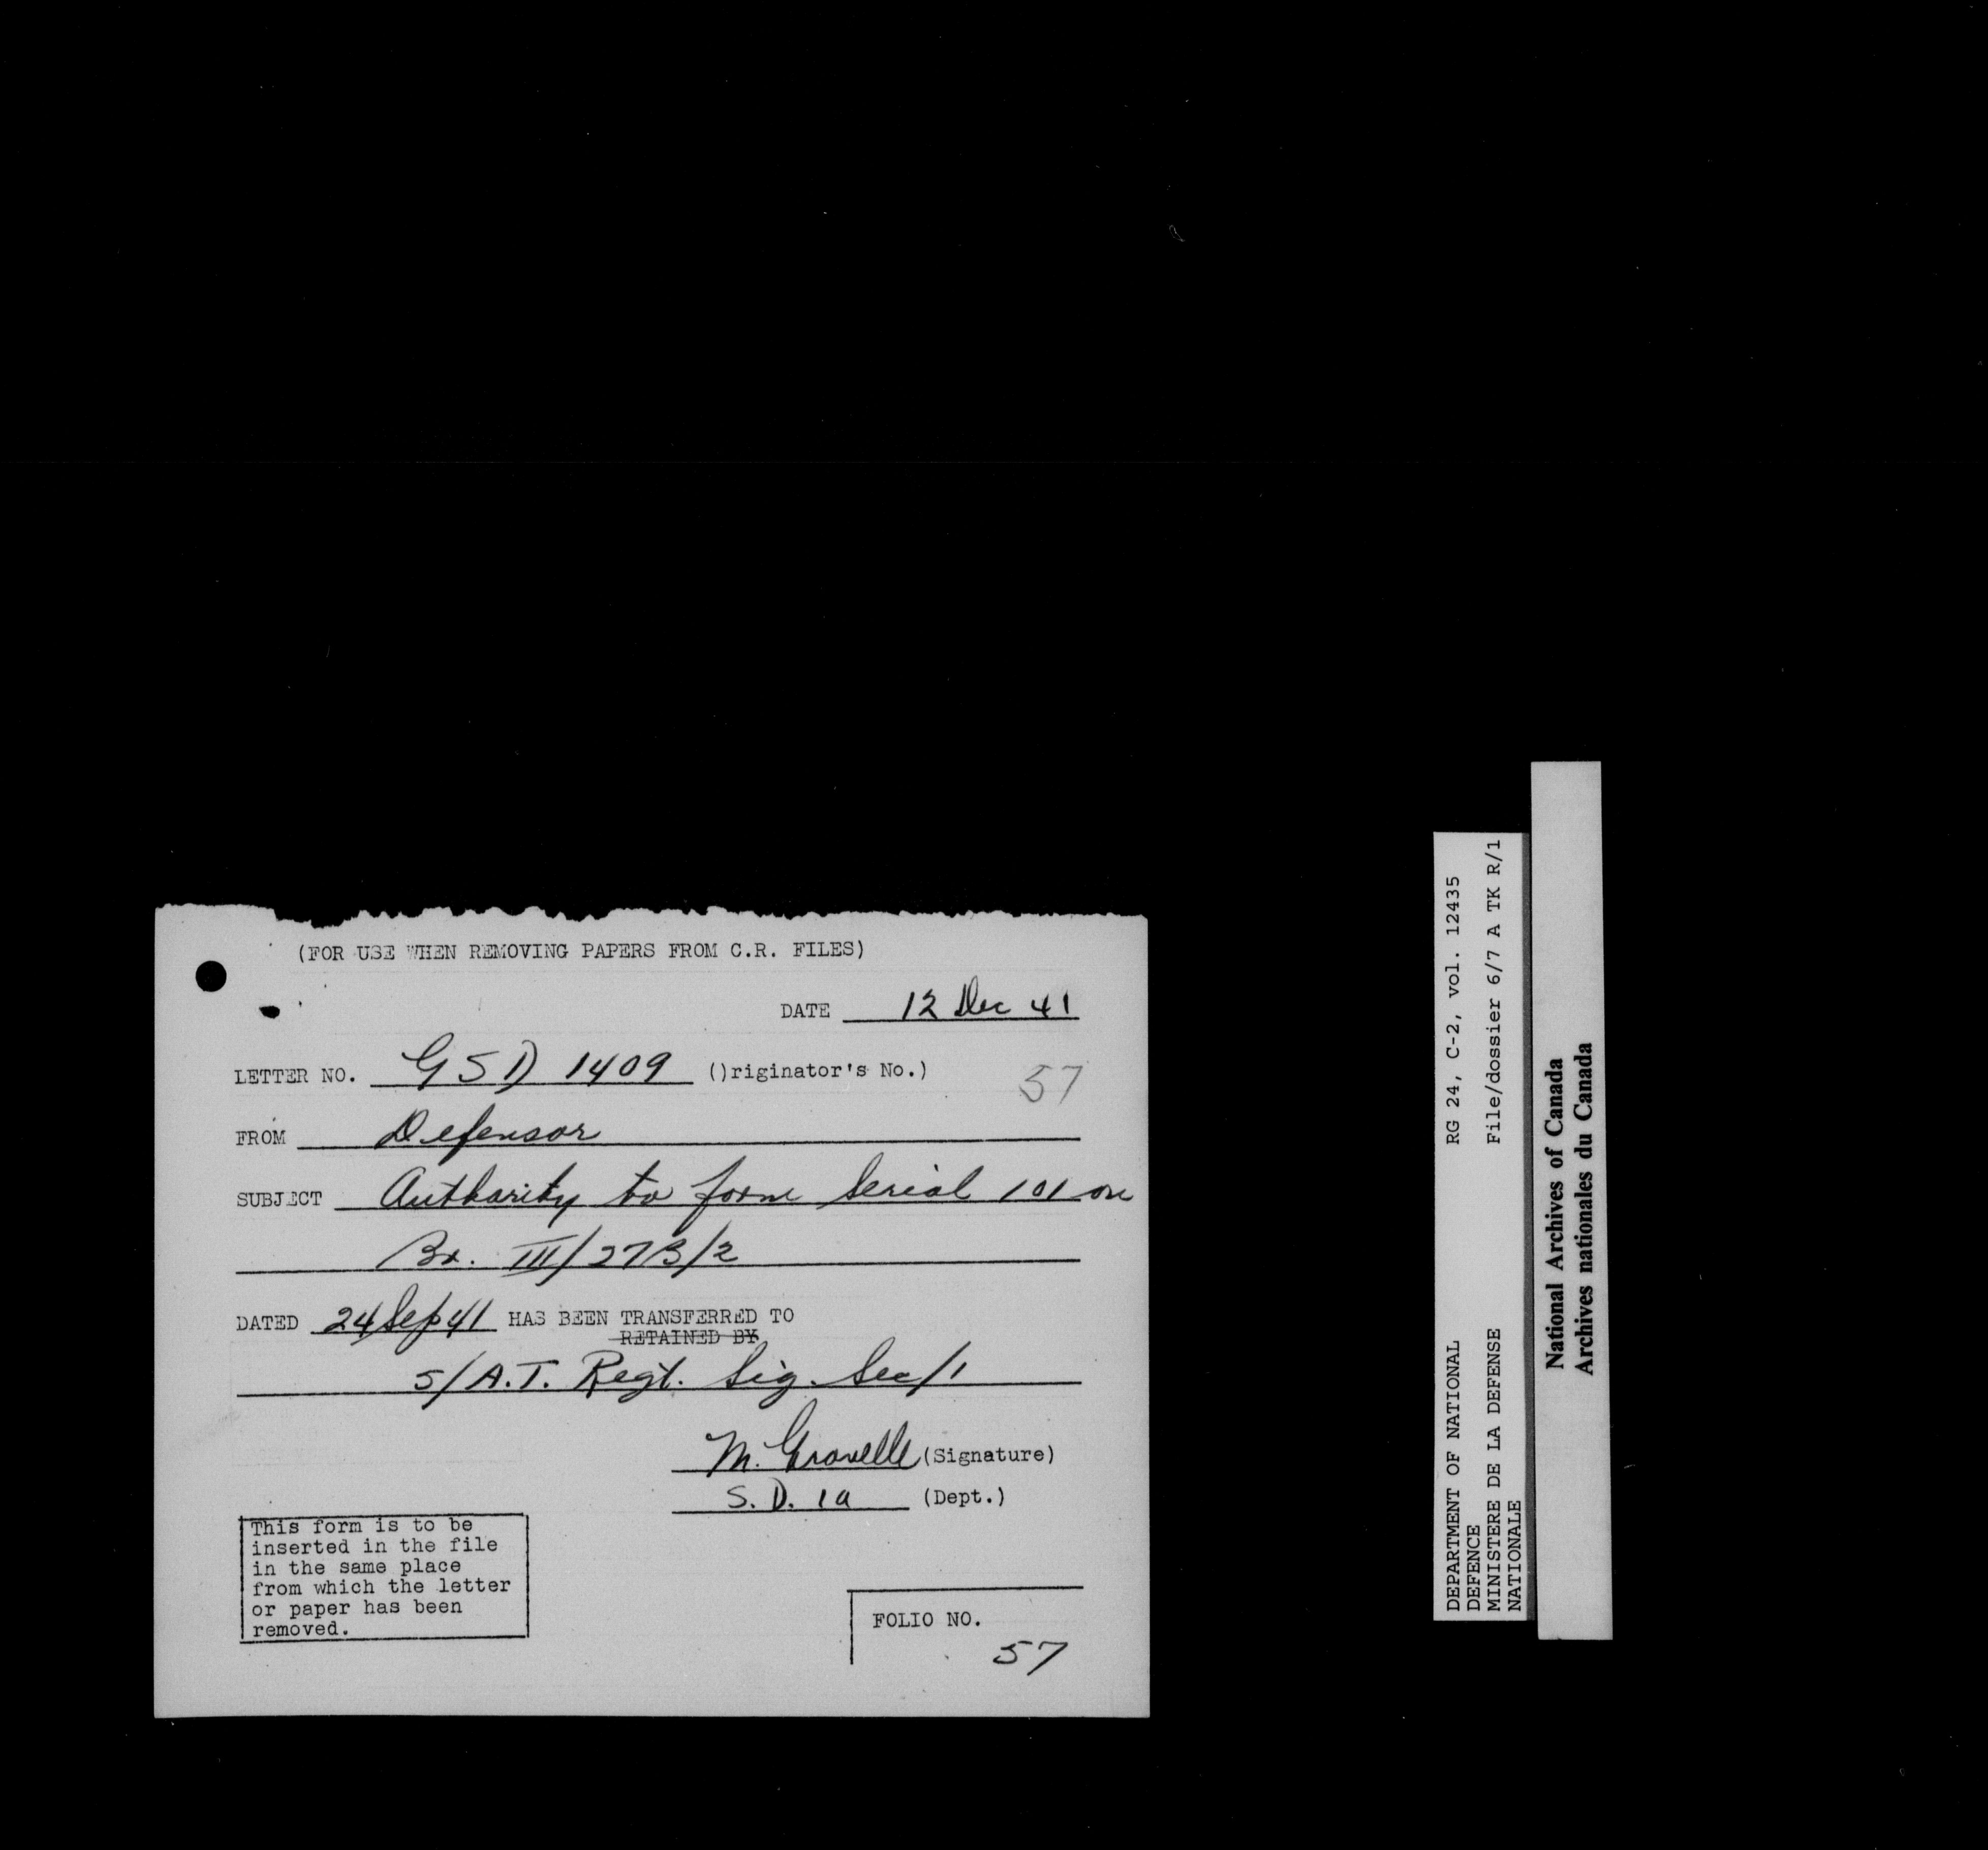 (FOR USE WHEN REMOVING PAPERS FROM C.R. FILES)
DATE 12 Dec 41
LETTER NO. GSD 1409 ()riginator's No.)
57
FROM Defensor
SUBJECT Authority to form Serial 101 on
Br. III/27B/2
DATED 24 Sep 41 HAS BEEN TRANSFERRED TO
RETAINED BY
5/A.T. Regt. Sig. Sec/1
M. Gravelle (Signature)
S. D. 1a (Dept.)
This form is to be
inserted in the file
in the same place
from which the letter
or paper has been
removed.
FOLIO NO.
57
DEPARTMENT OF NATIONAL RG 24, C-2, vol. 12435
DEFENCE
MINISTERE DE LA DEFENSE File/dossier 6/7 A TK R/1
NATIONALE
National Archives of Canada
Archives nationales du Canada